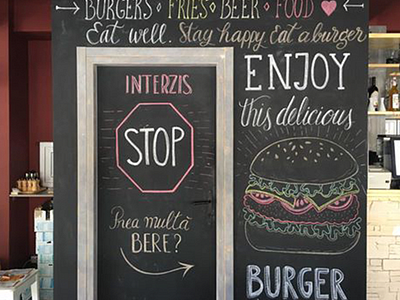 BURGERS · FRIES · BEER · FOOD
Eat well. Stay happy. Eat a burger
INTERZIS
STOP
Prea multă
BERE?
ENJOY
this delicious
BURGER